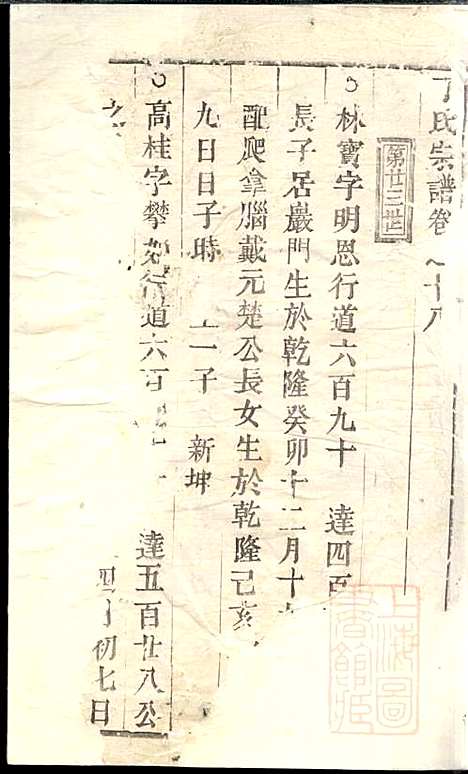 丁氏宗譜卷 十八
第廿三世
林寶字明恩行道六百九十 達四百
長子居巖門生於乾隆癸卯十二月十
配爬拿腦戴元楚公長女生於乾隆己亥
九日日子時 一子 新坤
高桂字攀 行道六百 達五百廿八公
四月初七日
上海圖書館